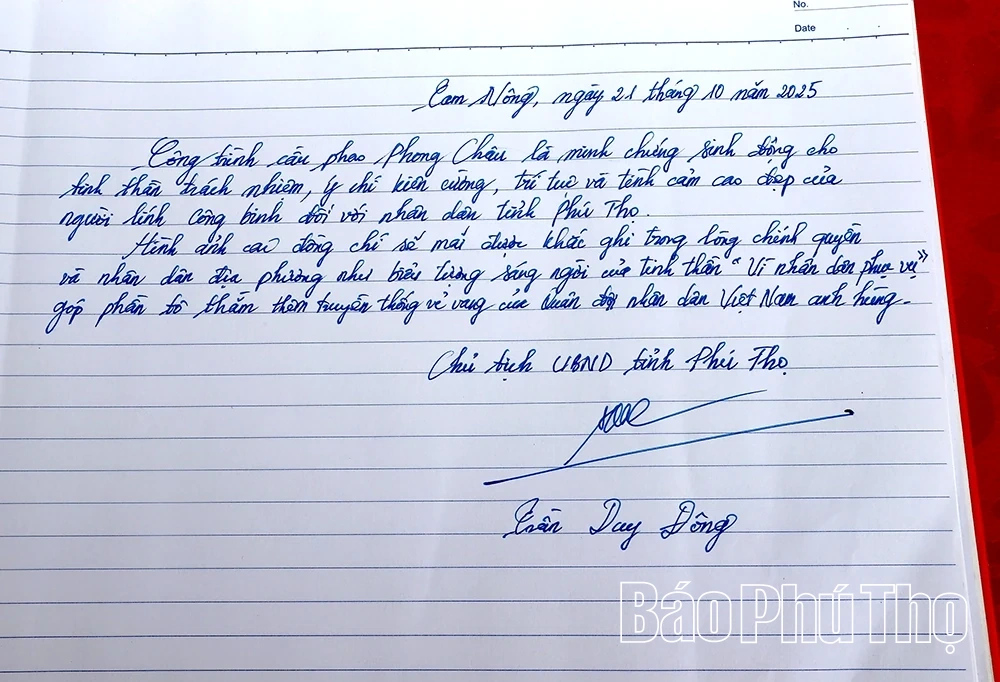 No.
Date
Tam Nông, ngày 21 tháng 10 năm 2025
Công trình cầu phao Phong Châu là minh chứng sinh động cho
tinh thần trách nhiệm, ý chí kiên cường, trí tuệ và tình cảm cao đẹp của
người lính công binh đối với nhân dân tỉnh Phú Thọ.
Hình ảnh các đồng chí sẽ mãi được khắc ghi trong lòng chính quyền
và nhân dân địa phương như biểu tượng sáng ngời của tinh thần "Vì nhân dân phục vụ"
góp phần tô thắm thêm truyền thống vẻ vang của Quân đội nhân dân Việt Nam anh hùng.
Chủ tịch UBND tỉnh Phú Thọ
Trần Duy Đông
Báo Phú Thọ